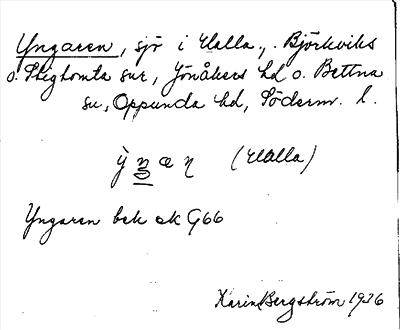 Yngaren, sjö i Halla,. Björkviks
o. Stigtomta snr, Jönåkers hd o. Bettna
sn, Oppunda hd, Söderm. l.
(Halla)
Yngaren bek ek G66
Karin Bergström 1936